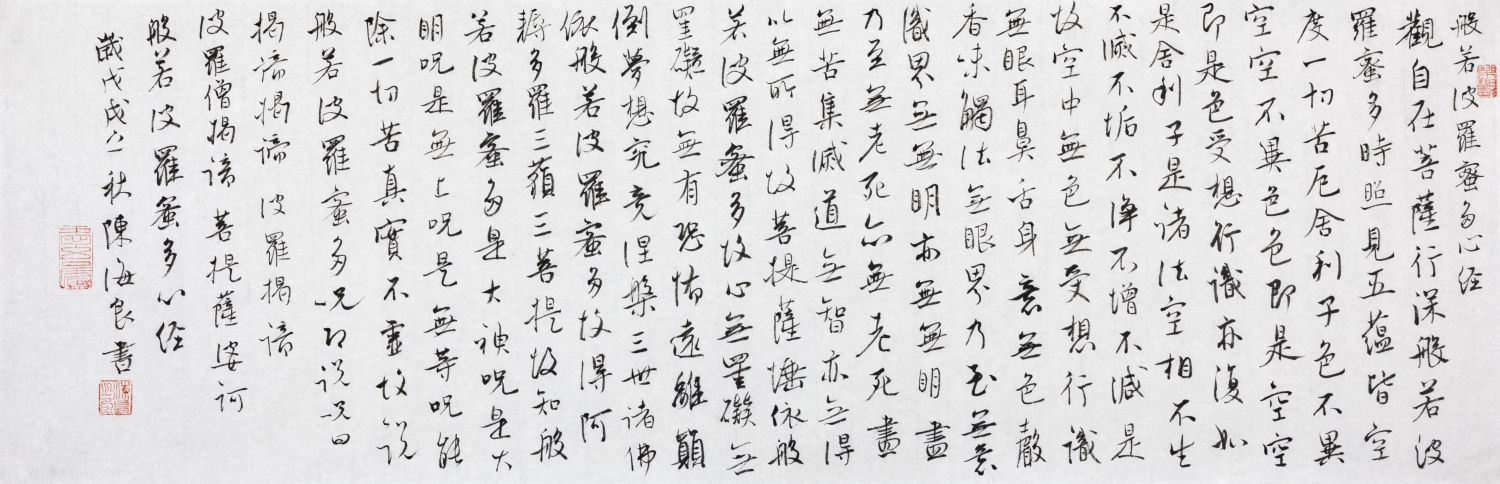 般若波羅蜜多心经
觀自在菩薩行深般若波
羅蜜多時照見五蕴皆空
度一切苦厄舍利子色不異
空空不異色色即是空空
即是色受想行識亦復如
是舍利子是诸法空相不生
不滅不垢不淨不增不減是
故空中無色無受想行識
無眼耳鼻舌身意無色聲
香味觸法無眼界乃至無意
識界無無明亦無無明盡
乃至無老死亦無老死盡
無苦集滅道無智亦無得
以無所得故菩提薩埵依般
若波羅蜜多故心無罣礙無
罣礙故無有恐怖遠離顛
倒夢想究竟涅槃三世诸佛
依般若波羅蜜多故得阿
耨多羅三藐三菩提故知般
若波羅蜜多是大神呪是大
明呪是無上呪是無等呪能
除一切苦真實不虛故说
般若波羅蜜多呪即说呪曰
揭谛揭谛 波羅揭谛
波羅僧揭谛 菩提薩婆訶
般若波羅蜜多心经
歲戊戌之秋陳海良書